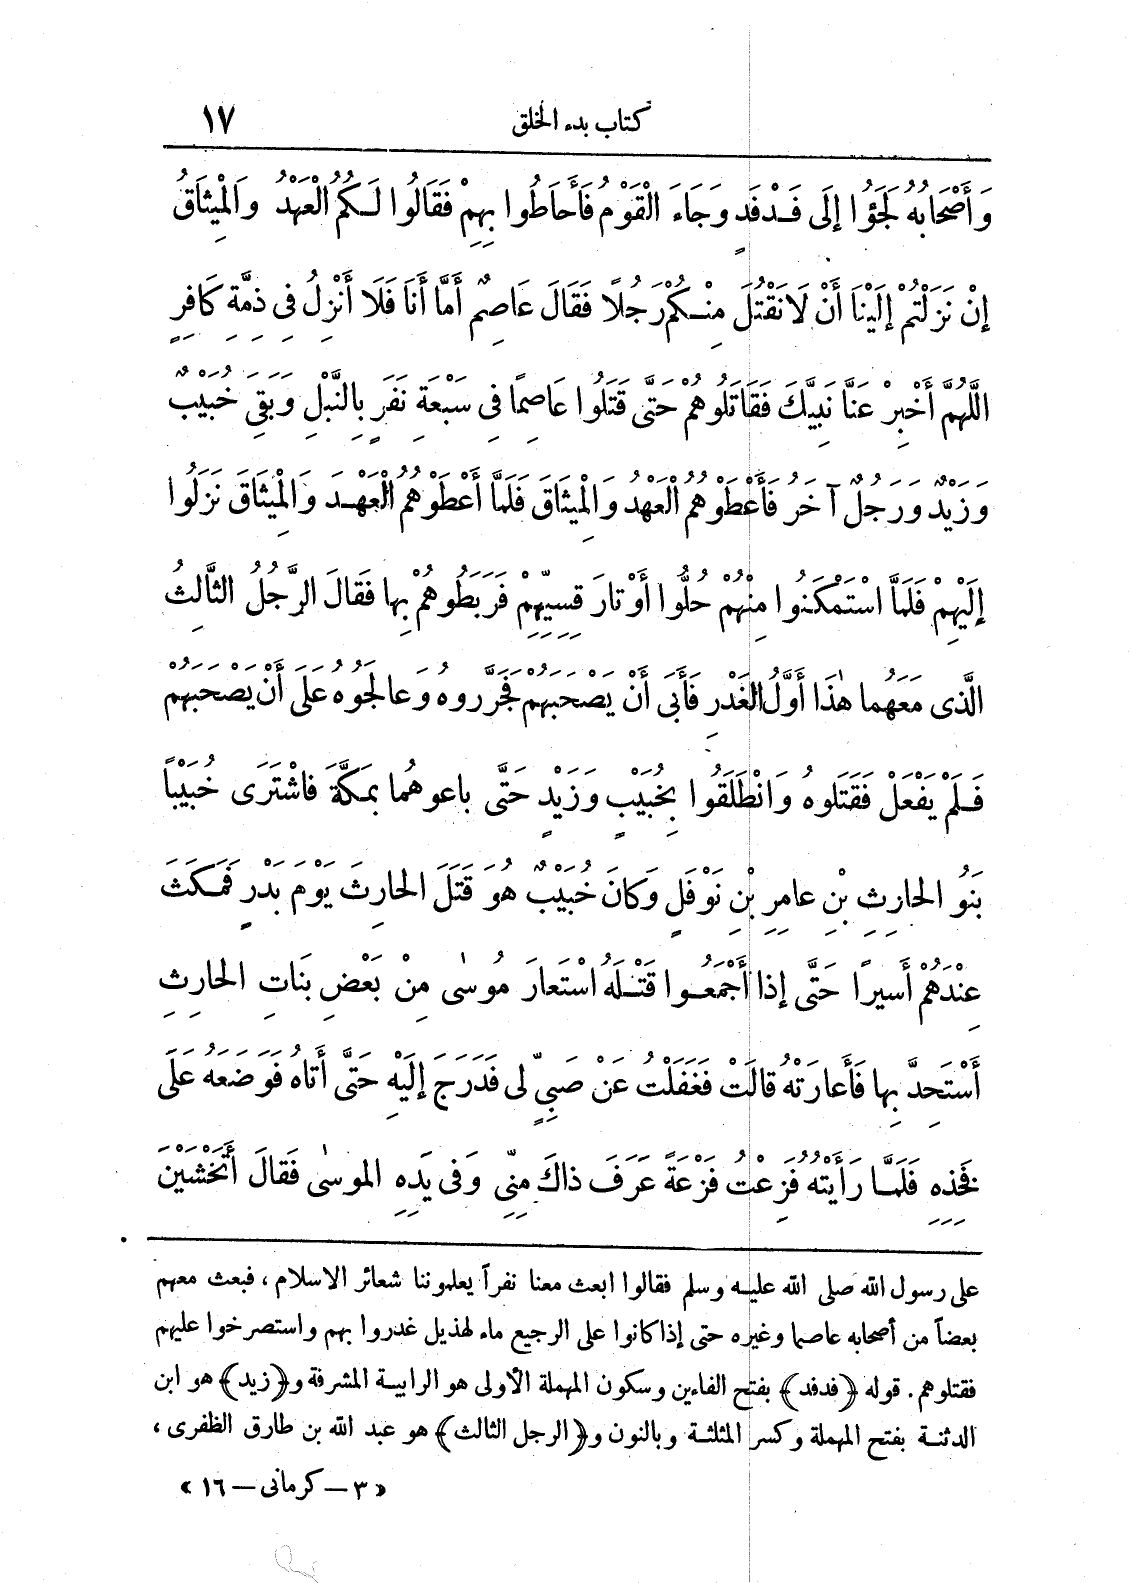 كتاب بدء الخلق ١٧
وَأَصْحَابُهُ لَجَؤُا إِلَى فَدْفَدٍ وَجَاءَ الْقَوْمُ فَأَحَاطُوا بِهِمْ فَقَالُوا لَكُمُ الْعَهْدُ وَالْمِيثَاقُ
إِنْ نَزَلْتُمْ إِلَيْنَا أَنْ لَا نَقْتُلَ مِنْكُمْ رَجُلًا فَقَالَ عَاصِمٌ أَمَّا أَنَا فَلَا أَنْزِلُ فِى ذِمَّةِ كَافِرٍ
اللَّهُمَّ أَخْبِرْ عَنَّا نَبِيَّكَ فَقَاتَلُوهُمْ حَتَّى قَتَلُوا عَاصِمًا فِى سَبْعَةِ نَفَرٍ بِالنَّبْلِ وَبَقِىَ خُبَيْبٌ
وَزَيْدٌ وَرَجُلٌ آخَرُ فَأَعْطَوْهُمُ الْعَهْدَ وَالْمِيثَاقَ فَلَمَّا أَعْطَوْهُمُ الْعَهْدَ وَالْمِيثَاقَ نَزَلُوا
إِلَيْهِمْ فَلَمَّا اسْتَمْكَنُوا مِنْهُمْ حَلُّوا أَوْتَارَ قِسِيِّهِمْ فَرَبَطُوهُمْ بِهَا فَقَالَ الرَّجُلُ الثَّالِثُ
الَّذِى مَعَهُما هٰذَا أَوَّلُ الْغَدْرِ فَأَبَى أَنْ يَصْحَبَهُمْ فَجَرَّرُوهُ وَعَالَجُوهُ عَلَى أَنْ يَصْحَبَهُمْ
فَلَمْ يَفْعَلْ فَقَتَلُوهُ وَانْطَلَقُوا بِخُبَيْبٍ وَزَيْدٍ حَتَّى باعُوهُما بِمَكَّةَ فاشْتَرَى خُبَيْبًا
بَنُو الحارِثِ بْنِ عامِرِ بْنِ نَوْفَلٍ وَكانَ خُبَيْبٌ هُوَ قَتَلَ الحارِثَ يَوْمَ بَدْرٍ فَمَكَثَ
عِنْدَهُمْ أَسيرًا حَتَّى إِذا أَجْمَعُوا قَتْلَهُ اسْتَعارَ مُوسٰى مِنْ بَعْضِ بَنَاتِ الحارِثِ
أَسْتَحِدَّ بِها فَأَعارَتْهُ قالَتْ فَغَفَلْتُ عَنْ صَبِيٍّ لِى فَدَرَجَ إِلَيْهِ حَتَّى أَتاهُ فَوَضَعَهُ عَلَى
فَخِذِهِ فَلَمَّا رَأَيْتُهُ فَزِعْتُ فَزْعَةً عَرَفَ ذاكَ مِنِّى وَفِى يَدِهِ الموسٰى فَقالَ أَتَخْشَيْنَ
على رسول الله صلى الله عليه وسلم فقالوا ابعث معنا نفراً يعلموننا شعائر الاسلام، فبعث معهم
بعضاً من أصحابه عاصما وغيره حتى إذا كانوا على الرجيع ماء لهذيل غدروا بهم واستصرخوا عليهم
فقتلوهم. قوله ﴿فدفد﴾ بفتح الفاءين وسكون المهملة الأولى هو الرابية المشرفة و﴿زيد﴾ هو ابن
الدثنة بفتح المهملة وكسر المثلثة وبالنون و﴿الرجل الثالث﴾ هو عبد الله بن طارق الظفرى،
«٣ - كرمانى - ١٦»